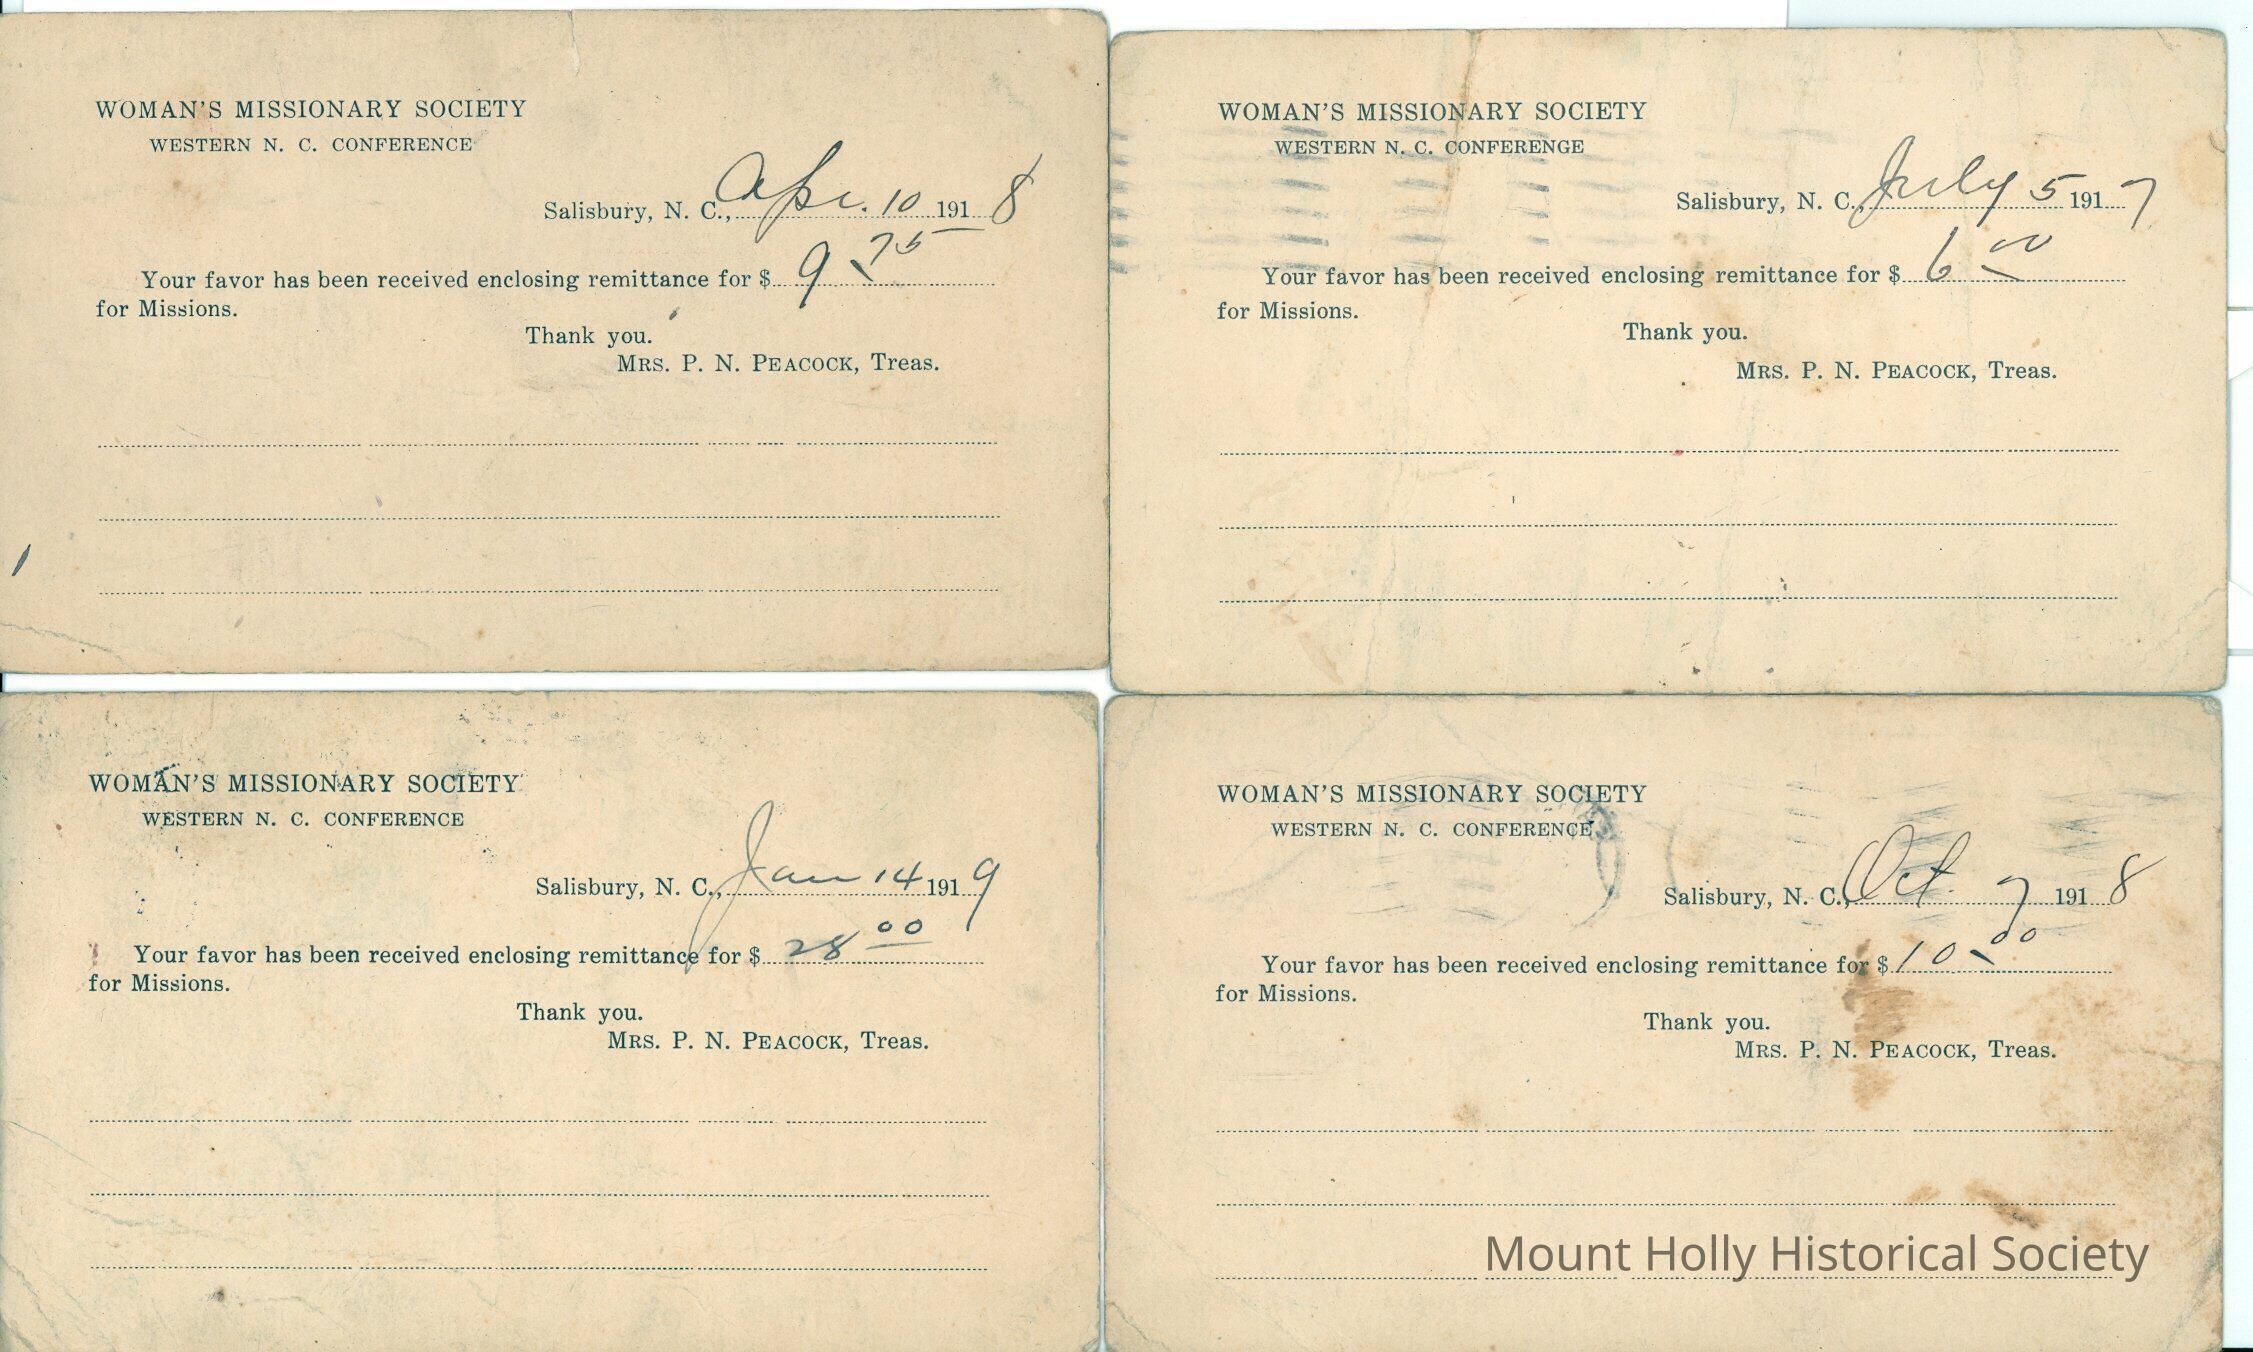 WOMAN'S MISSIONARY SOCIETY
WESTERN N. C. CONFERENCE
Salisbury, N. C., Apr. 10 1918
Your favor has been received enclosing remittance for $ 9 75
for Missions.
Thank you.
MRS. P. N. PEACOCK, Treas.
WOMAN'S MISSIONARY SOCIETY
WESTERN N. C. CONFERENGE
Salisbury, N. C., July 5 1917
Your favor has been received enclosing remittance for $ 6 00
for Missions.
Thank you.
MRS. P. N. PEACOCK, Treas.
WOMAN'S MISSIONARY SOCIETY
WESTERN N. C. CONFERENCE
Salisbury, N. C., Jan 14 1919
Your favor has been received enclosing remittance for $ 28 00
for Missions.
Thank you.
MRS. P. N. PEACOCK, Treas.
WOMAN'S MISSIONARY SOCIETY
WESTERN N. C. CONFERENCE
Salisbury, N. C., Oct. 7 1918
Your favor has been received enclosing remittance for $ 10 00
for Missions.
Thank you.
MRS. P. N. PEACOCK, Treas.
Mount Holly Historical Society